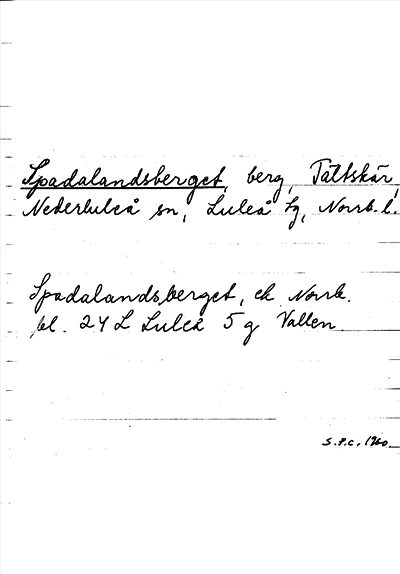 Spadalandsberget, berg, Tältskär,
Nederluleå sn, Luleå tg, Norrb. l.
Spadalandsberget, ek Norrb.
bl. 24 L Luleå 5 g Vallen
S.P.C. 1960.